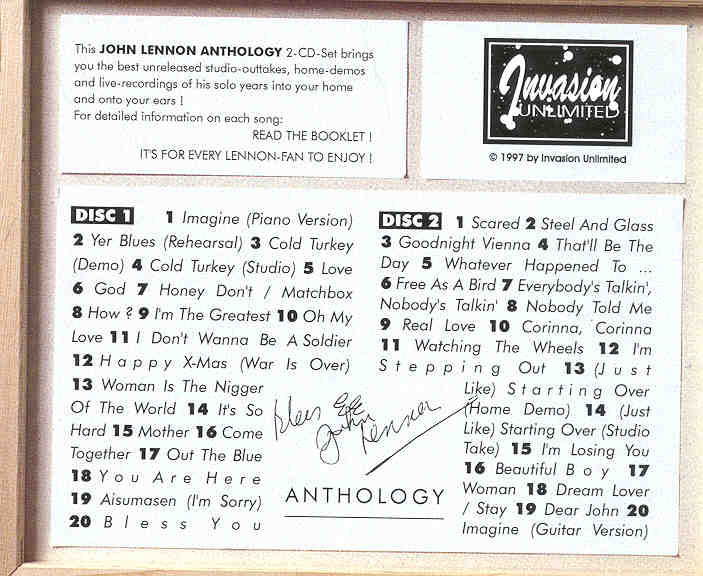 This JOHN LENNON ANTHOLOGY 2-CD-Set brings
you the best unreleased studio-outtakes, home-demos
and live-recordings of his solo years into your home
and onto your ears !
For detailed information on each song:
READ THE BOOKLET !
IT'S FOR EVERY LENNON-FAN TO ENJOY !
Invasion
UNLIMITED
© 1997 by Invasion Unlimited
DISC 1 1 Imagine (Piano Version)
2 Yer Blues (Rehearsal) 3 Cold Turkey
(Demo) 4 Cold Turkey (Studio) 5 Love
6 God 7 Honey Don't / Matchbox
8 How ? 9 I'm The Greatest 10 Oh My
Love 11 I Don't Wanna Be A Soldier
12 Happy X-Mas (War Is Over)
13 Woman Is The Nigger
Of The World 14 It's So
Hard 15 Mother 16 Come
Together 17 Out The Blue
18 You Are Here
19 Aisumasen (I'm Sorry)
20 Bless You
DISC 2 1 Scared 2 Steel And Glass
3 Goodnight Vienna 4 That'll Be The
Day 5 Whatever Happened To ...
6 Free As A Bird 7 Everybody's Talkin',
Nobody's Talkin' 8 Nobody Told Me
9 Real Love 10 Corinna, Corinna
11 Watching The Wheels 12 I'm
Stepping Out 13 (Just
Like) Starting Over
(Home Demo) 14 (Just
Like) Starting Over (Studio
Take) 15 I'm Losing You
16 Beautiful Boy 17
Woman 18 Dream Lover
/ Stay 19 Dear John 20
Imagine (Guitar Version)
John Lennon
ANTHOLOGY